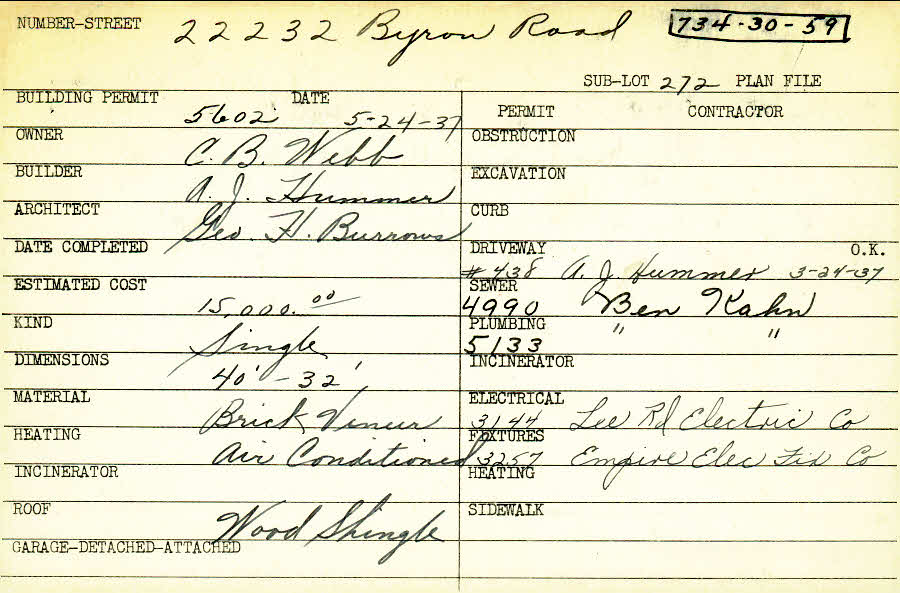 NUMBER-STREET 22232 Byron Road 734-30-59
SUB-LOT 272 PLAN FILE
BUILDING PERMIT 5602 DATE 5-24-37
PERMIT CONTRACTOR
OWNER C. B. Webb
OBSTRUCTION
BUILDER A. J. Hummer
EXCAVATION
ARCHITECT Geo. H. Burrows
CURB
DATE COMPLETED
DRIVEWAY O.K.
# 438 A. J. Hummer 3-24-37
ESTIMATED COST 15,000.00
SEWER
4990 Ben Kahn
KIND Single
PLUMBING " "
5133
DIMENSIONS 40' - 32'
INCINERATOR
MATERIAL Brick Veneer
ELECTRICAL
3144 Lee Rd Electric Co
HEATING Air Conditioned
FIXTURES
3257 Empire Elec Fix Co
INCINERATOR
HEATING
ROOF Wood Shingle
SIDEWALK
GARAGE-DETACHED-ATTACHED